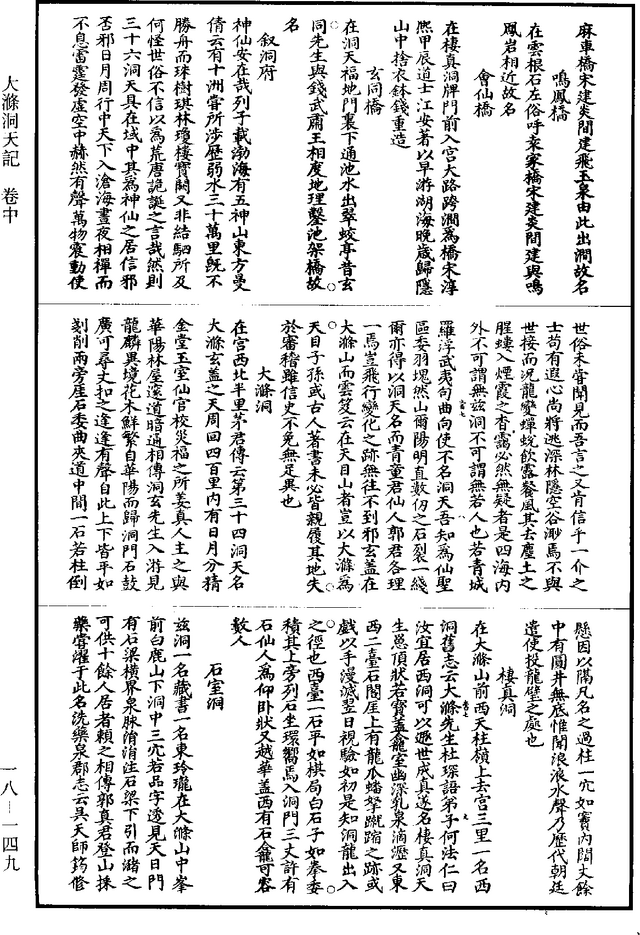 麻車橋宋建炎間建飛玉泉由此出澗故名
鳴鳳橋
在雲根石左俗呼袁家橋宋建炎間建與鳴
鳳岩相近故名
會仙橋
在棲真洞牌門前入宮大路跨澗為橋宋淳
熙甲辰道士江安者以早游湖海晚歲歸隱
山中捨衣鉢錢重造
玄同橋
在洞天福地門裏下通池水出翠蛟亭昔玄
同先生與錢武肅王相度地理鑿池架橋故
名
叙洞府
神仙安在哉列子載渤海有五神山東方曼
倩云有十洲嘗所涉歷弱水三十萬里既不
勝舟而珠樹琪林瓊樓寶闕又非結駟所及
何怪世俗不信以為荒唐詭誕之言哉然則
三十六洞天具在域中其為神仙之居信邪
否邪日月周行中天下入滄海晝夜相禪而
不息雷霆發虛空中赫然有聲萬物震動使
世俗未嘗聞見而吾言之又肯信乎一介之
士苟有遐心尚將逃深林隱空谷渺焉不與
世接而況龍變蟬蛻飲露餐風其去塵土之
腥螻入煙霞之杳靄必然無疑者是四海內
外不可謂無茲洞不可謂無若人也若青城
羅浮武夷句曲向使不名洞天吾知為仙聖
區委羽塊然山爾陽明直數仞之石裂一綫
爾亦得以洞天名而青童君仙人郭君各理
一馬豈飛行變化之跡無往不到邪玄蓋在
大滌山而雲笈云在天目山者豈以大滌為
天目子孫或古人著書未必皆親履其地失
於審稽雖信史不免無足異也
大滌洞
在宮西北半里茅君傳云第三十四洞天名
大滌玄蓋之天周回四百里內有日月分精
金堂玉室仙官校災福之所姜真人主之與
華陽林屋邃道暗通相傳洞玄先生入游見
龍麟異境花木鮮繁自華陽而歸洞門石鼓
廣可尋丈扣之逢逢有聲自此上下皆平如
刻削兩旁崖石委曲夾道中間一石若柱倒
懸因以隔凡名之過柱一穴如竇內闊丈餘
中有圓井無底惟聞浪浪水聲乃歷代朝廷
遣使投龍璧之處也
棲真洞
在大滌山前西天柱嶺上去宮三里一名西
洞舊志云大滌先生杜琛語弟子何法仁曰
汝宜居西洞可以遯世成真遂名棲真洞天
生怹頂狀若寶蓋龕室幽深乳泉滴瀝又東
西二臺石閣崖上有龍爪蟠拏蹴蹜之跡或
戲以手漫滅翌日視驗如初是知洞龍出入
之徑也西臺一石平如棋局白石子如拳委
積其上旁列石坐環嚮焉入洞門三丈許有
石仙人為仰卧狀又越華蓋西有石龕可容
數人
石室洞
茲洞一名藏書一名東玲瓏在大滌山中峯
前白鹿山下洞中三穴若品字透見天日門
有石梁橫界泉脉涓涓注石梁下引而瀦之
可供十餘人居者賴之相傳郭真君登山採
藥嘗濯于此名洗藥泉郡志云吳天師筠修
大滌洞天記　卷中
一八—一四九